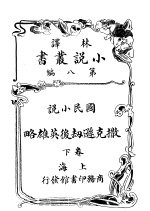 林譯
小說叢書
第八編
國民小說
撒克遜劫後英雄略
卷下
上海
商務印書館發行